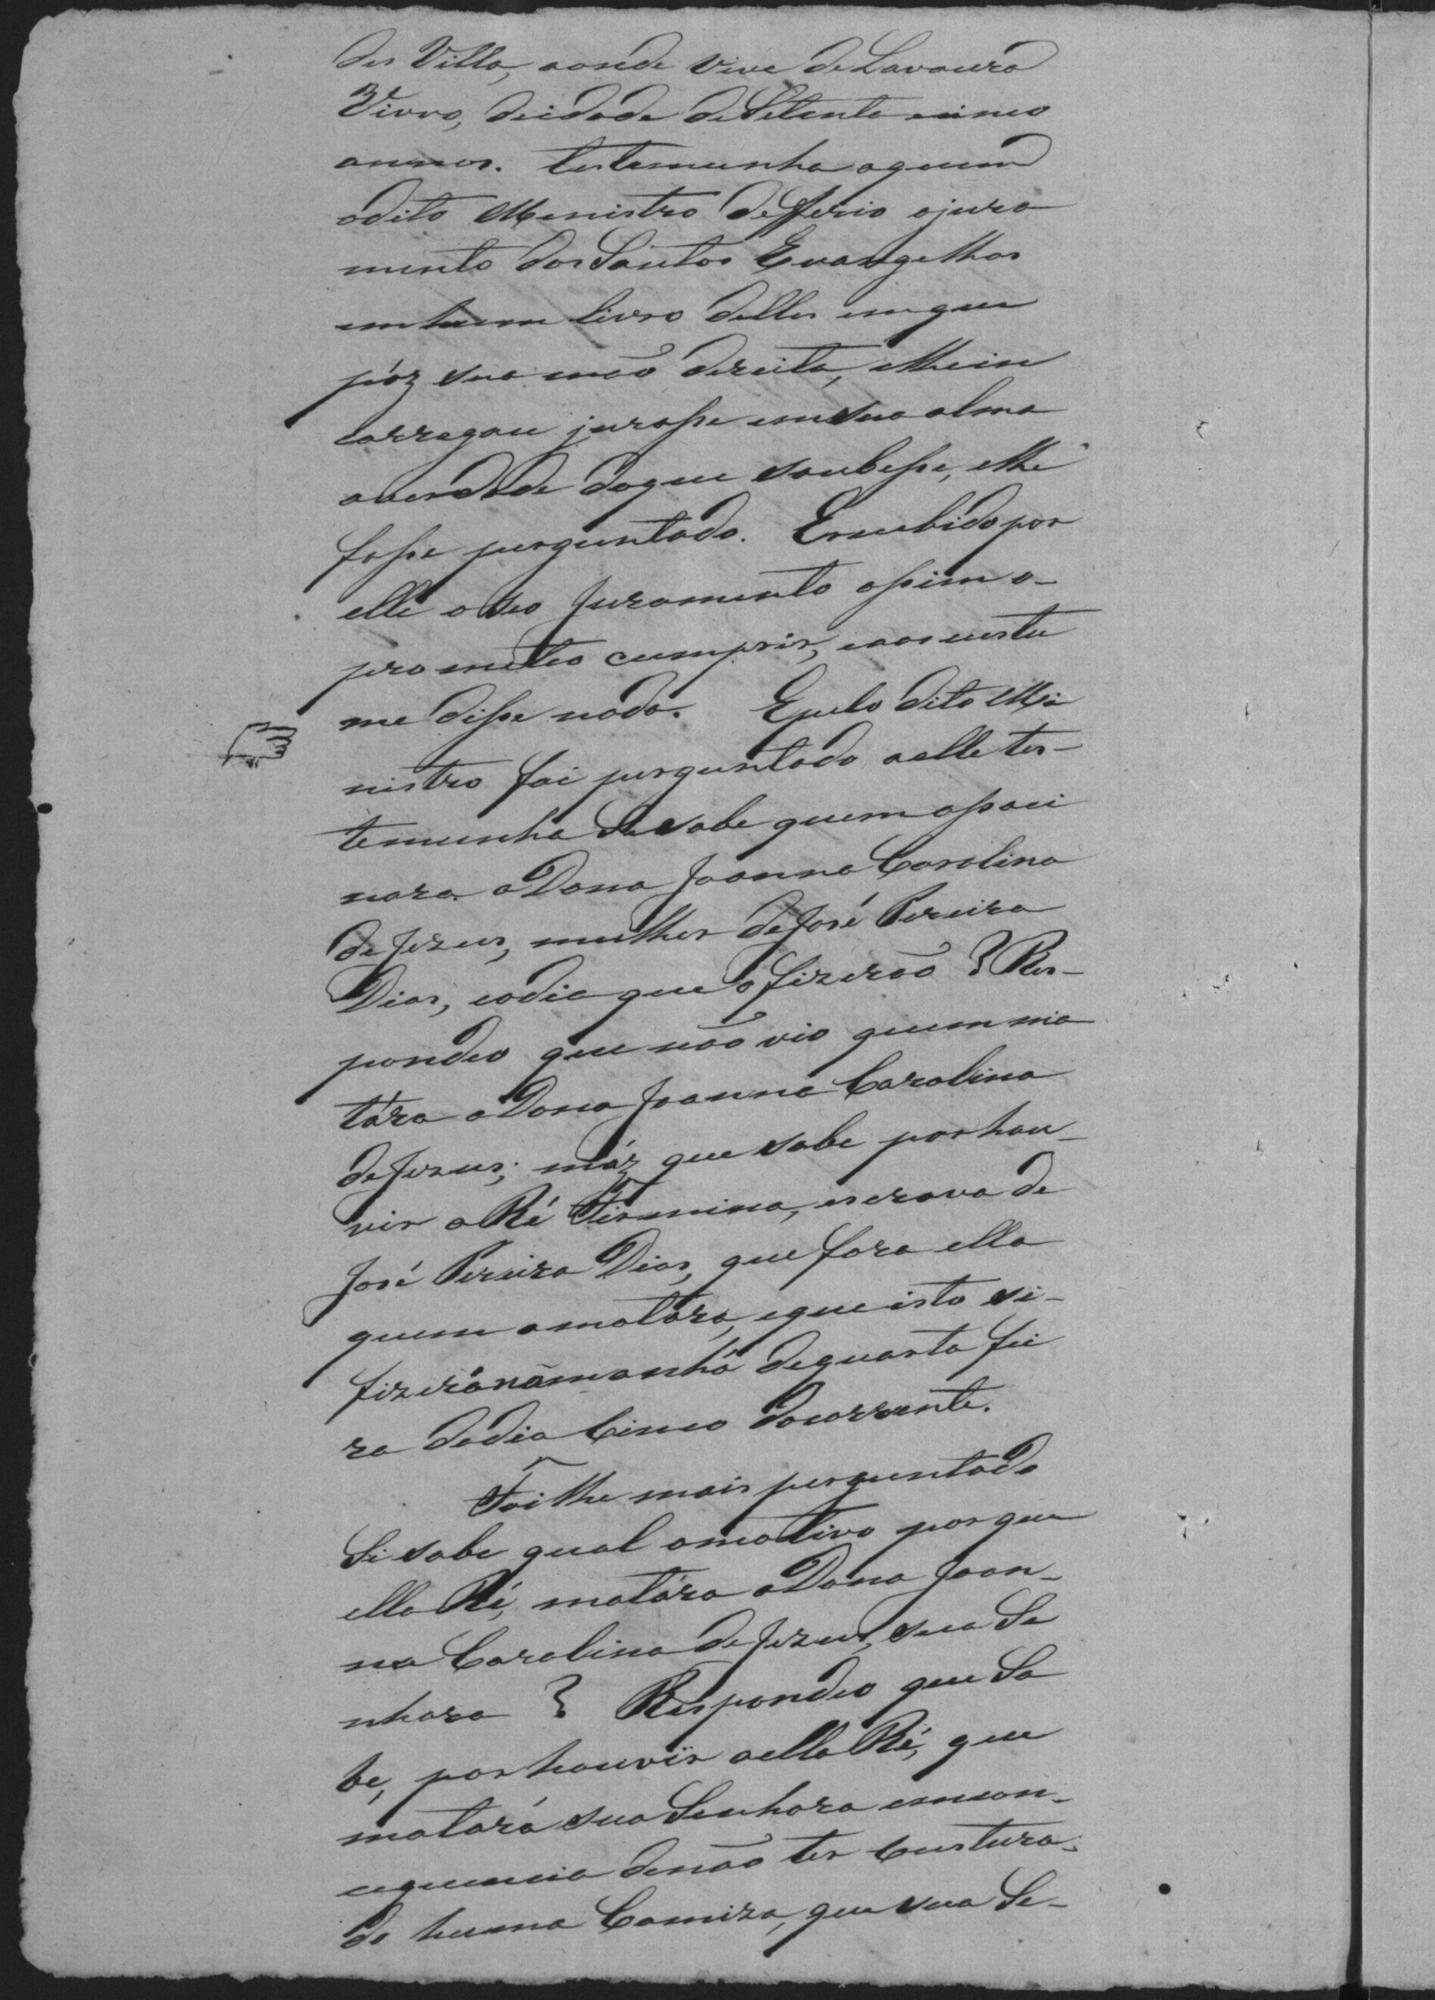 des Villa, aonde vive de Lavoura
Viuvo, de idade de Setenta cinco
annos. testemunha aquem
odito Menistro defferio ojura
mento dos Santos Evangelhos
em hum livro delles em que
póz sua mão direita, elhe in
carregou jurasse em sua alma
averdade do que soubesse, elhe
fosse perguntado. Erecebido por
elle oseo juramento assim o-
prometeo cumprir, eaos custu
me disse nada. Epelo dito Mi
nistro foi perguntado aelle tes-
temunha Se sabe quem assaci
nara a Dona Joanna Carolina
de Jezus, mulher de José Pereira
Dias, eodia que o fizerão? Res-
pondeo que não vio quem ma
tára a Dona Joanna Carolina
de Jezus; máz que sabe por hou-
vir a Ré Firmina, escrava de
José Pereira Dias, que fora ella
quem amatára, eque isto si-
fizerá na manhã de quarta fei
ra do dia Cinco do corrente.
Foi lhe mais perguntado
Si sabe qual omotivo por que
ella Ré, matára a Dona Joan-
na Carolina de Jezus, sua Se
nhora? Respondeo que Sa
be, por houvir aella Ré, que
matará sua Senhora em con-
cequencia de não ter Custura-
do huma Camiza, que sua Se-